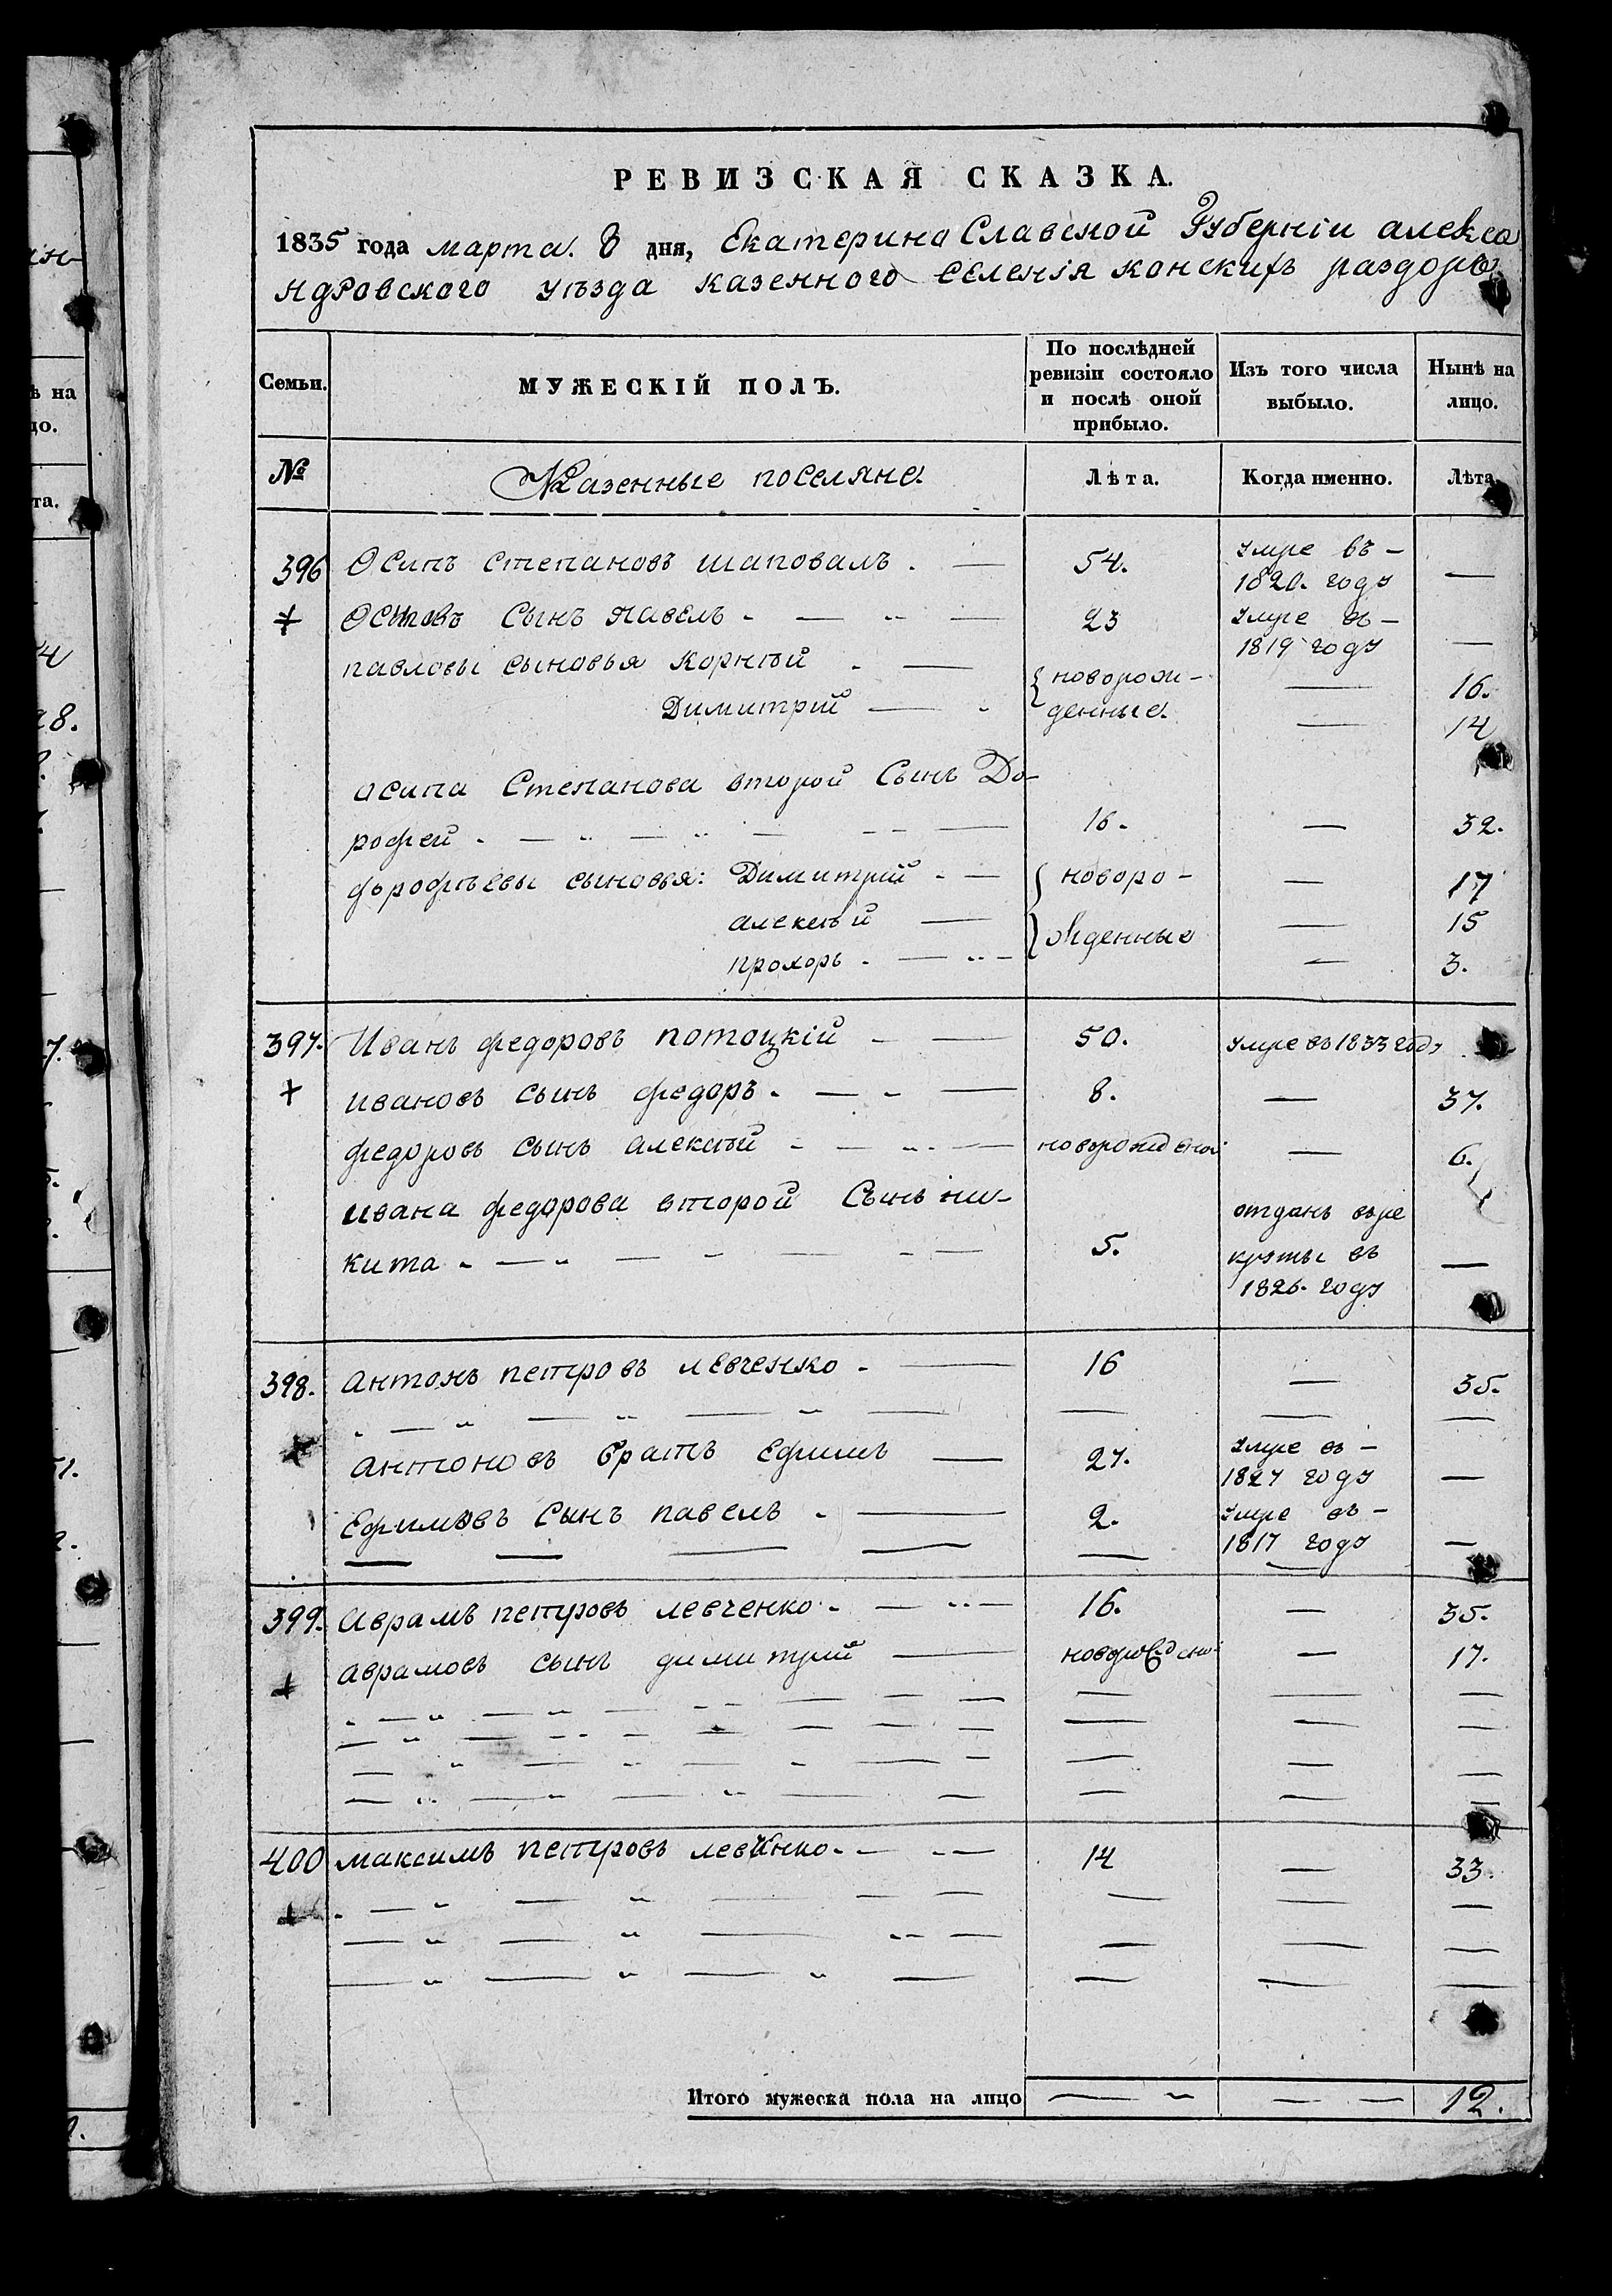 РЕВИЗСКАЯ СКАЗКА.
1835 года марта. 8 дня, Екатерино Славской Губерніи алекса
ндровского уѣзда казенного селенія конскихъ раздоръ
Семьи. МУЖЕСКІЙ ПОЛЪ. По послѣдней ревизіи состояло и послѣ оной прибыло. Изъ того числа выбыло. Нынѣ на лицо.
№ Казенные поселяне. Лѣта. Когда именно. Лѣта
396 Осипъ степановъ шаповалъ. — 54. умре въ — 1820. году —
Осиповъ Сынъ павелъ — 23 умре въ — 1819 году —
павловы сыновья корнѣй — { новорож- — 16.
Димитрий — денные. — 14
осипа Степанова второй Сынъ До-
рофей — 16. — 32.
дорофѣевы сыновья: Димитрий — { новоро- — 17
алексѣй — { жденные — 15
прохоръ. — — 3.
397. Иванъ федоровъ потоцкій — 50. умре въ 1833 году
ивановъ сынъ федоръ. — 8. — 37.
федоровъ сынъ алексѣй — новорожденой — 6.
ивана федорова второй Сынъ ни-
кита — 5. отданъ въре круты въ 1826. году —
398. антонъ петровъ левченко — 16 — 35.
антоновъ братъ Ефимъ — 27. умре въ — 1827 году —
Ефимовъ Сынъ павелъ — 2. умре въ — 1817 году —
399. аврамъ петровъ левченко — 16. — 35.
аврамовъ сынъ димитрий — — 17.
400 максимъ петровъ левченко — 14 — 33.
Итого мужеска пола на лицо — — 12.
ѣ на
цо.
та.